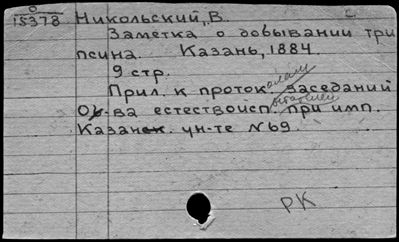 О
15378 Никольский, В.
Заметка о добывании три
псина. Казань, 1884.
9 стр.
Прил. к проток. заседаний
О-ва естествоисп. при имп.
Казанск. ун-те №69.
РК